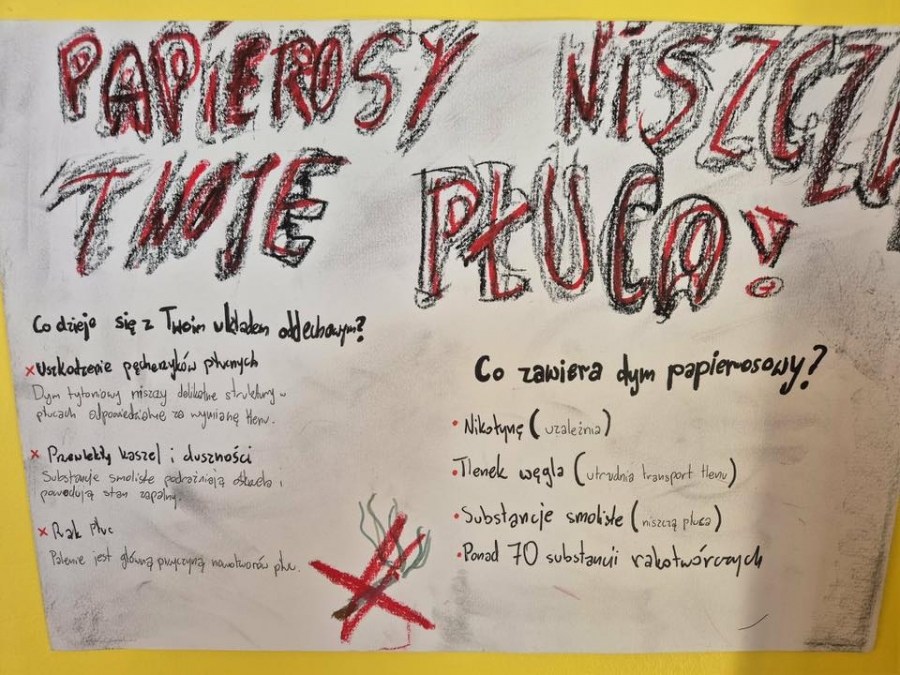 PAPIEROSY NISZCZĄ
TWOJE PŁUCA!
Co dzieje się z Twoim układem oddechowym?
x Uszkodzenie pęcherzyków płucnych
Dym tytoniowy niszczy delikatne struktury w
płucach odpowiedzialne za wymianę tlenu.
x Przewlekły kaszel i duszności
Substancje smoliste podrażniają oskrzela i
powodują stan zapalny.
x Rak płuc
Palenie jest główną przyczyną nowotworów płuc.
Co zawiera dym papierosowy?
• Nikotynę (uzależnia)
• Tlenek węgla (utrudnia transport tlenu)
• Substancje smoliste (niszczą płuca)
• Ponad 70 substancji rakotwórczych